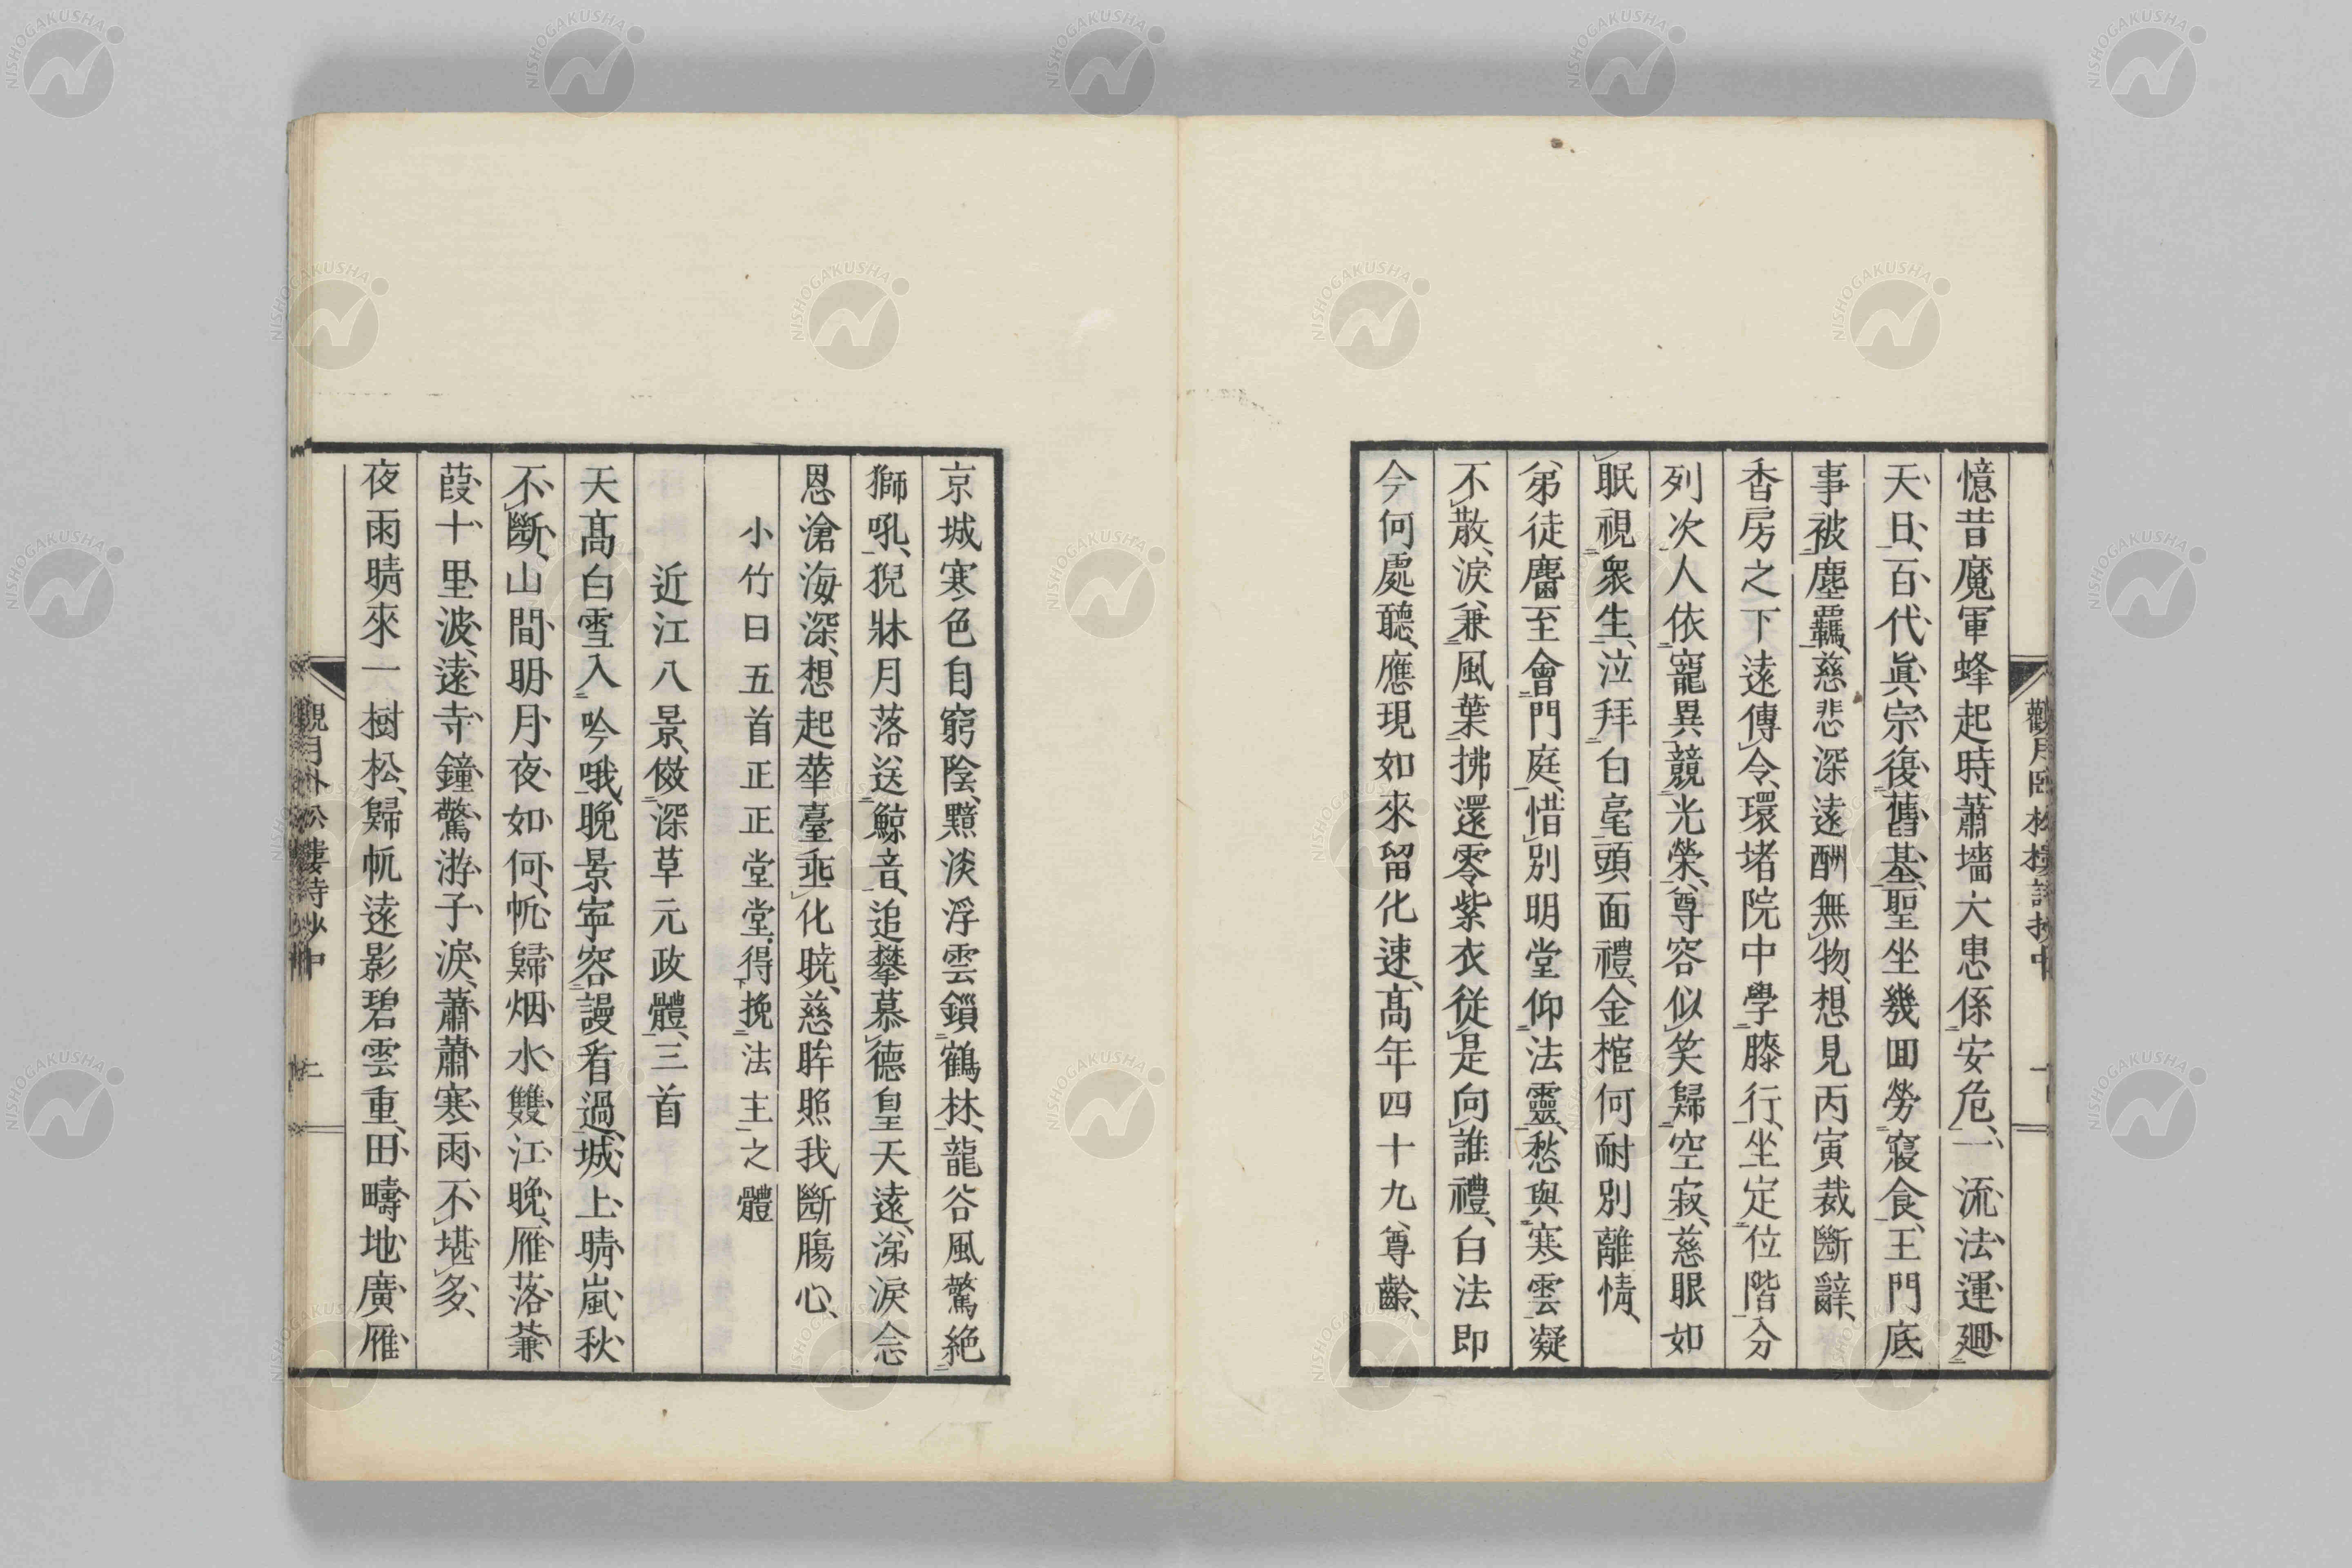 憶昔魔軍蜂起時、蕭墻大患係安危、一流法運廻
天日、百代眞宗復舊基、聖坐幾囬勞寢食、王門底
事被塵羈、慈悲深遠酬無物、想見丙寅裁斷辭、
香房之下遠傳令、環堵院中學膝行、坐定位階分
列次人依寵異競光榮、尊容似笑歸空寂、慈眼如
眠視衆生、泣拜白毫頭面禮、金棺何耐別離情、
弟徒麕至會門庭、惜別明堂仰法靈、愁與寒雲凝
不散、淚兼風葉拂還零紫衣從是向誰禮、白法即
今何處聽、應現如來留化速、高年四十九尊齡、
京城寒色自窮陰、黯淡浮雲鎻鶴林、龍谷風驚絶
獅吼、猊牀月落送鯨音、追攀慕德皇天遠、涕淚念
恩滄海深、想起華臺乖化曉、慈眸照我斷膓心、
小竹曰五首正正堂堂、得挽法主之體
近江八景、倣深草元政體、三首
天高白雪入吟哦、晚景寧容謾看過、城上晴嵐秋
不斷、山間明月夜如何、帆歸烟水雙江晚、雁落蒹
葭十里波、遠寺鐘驚游子淚、蕭蕭寒雨不堪多、
夜雨晴來一樹松、歸帆遠影碧雲重、田疇地廣雁